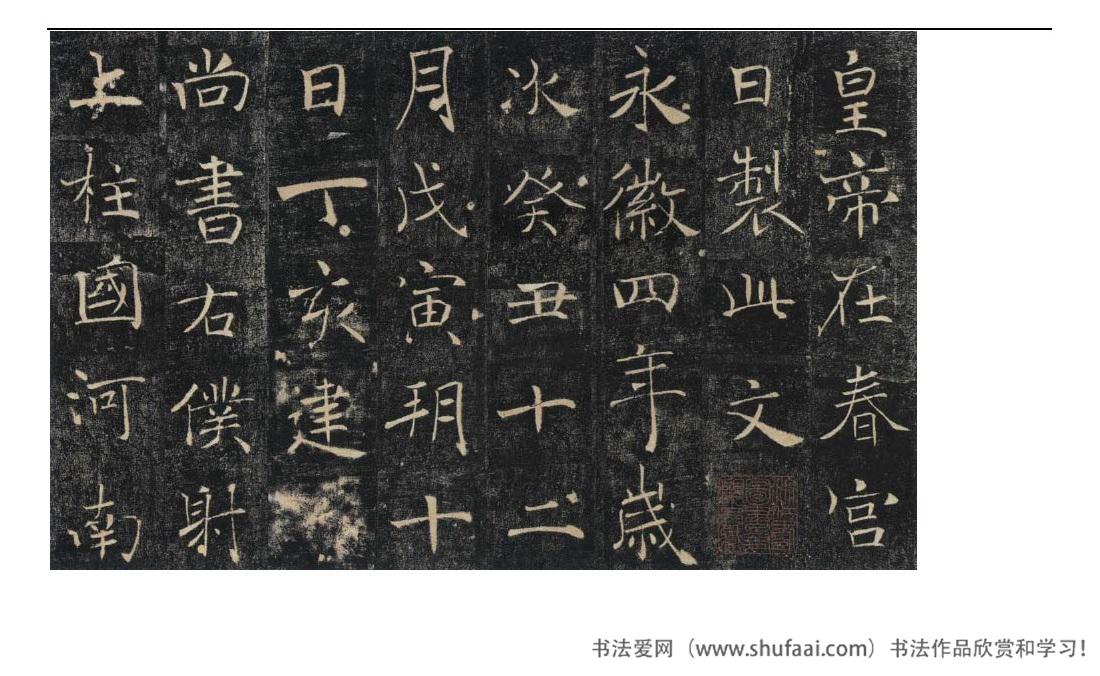 皇帝在春宮
日製此文
永徽四年歲
次癸丑十二
月戊寅玥十
日丁亥建
尚書右僕射
上柱國河南
书法爱网（www.shufaai.com）书法作品欣赏和学习！